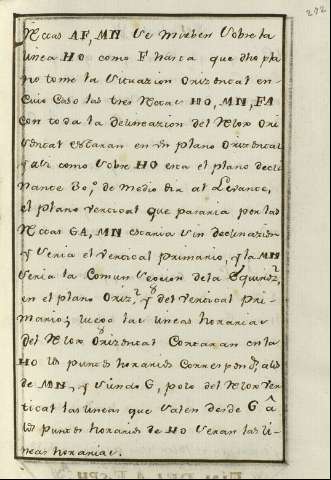 272
Rectas AF, MN se mueben sobre la
linea HO como F hasta que dho pla
no tome la situazion orizontal en
cuio caso las tres Rectas HO, MN, FA
con toda la delineazion del Relox Ori
zontal estaran en un plano Orizontal
y asi como sobre HO esta el plano decli
nante 30,º de medio dia al Levante,
el plano vertical que pasaria por las
Rectas GA, MN estaria sin declinazion
y seria el vertical primario, y la MN
seria la comun seccion de la Equinoz.
en el plano Oriz.l y del vertical pri
mario; luego las lineas horarias
del Relox Orizontal Cortaran en la
HO los puntos horarios correspond.s a los
de MN, y siendo G, polo del Relox ver
tical las lineas que salen desde G â
los puntos horarios de HO seran las li
neas horarias.